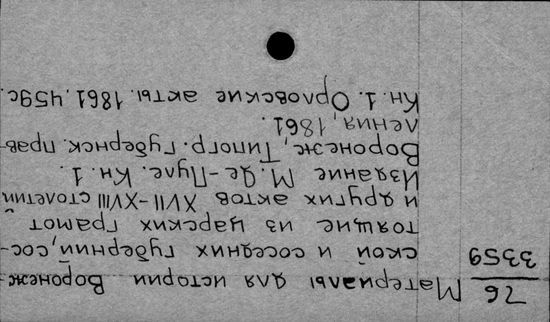 76
3359
Материалы для истории Воронеж-
ской и соседних губерний, сос-
тоящие из царских грамот
и других актов XVII-XVIII столетий
Издание М. Де-Пуле. Кн. 1.
Воронеж, Типогр. Губернск. прав-
ления, 1861.
Кн. 1. Орловские акты. 1861. 459с.